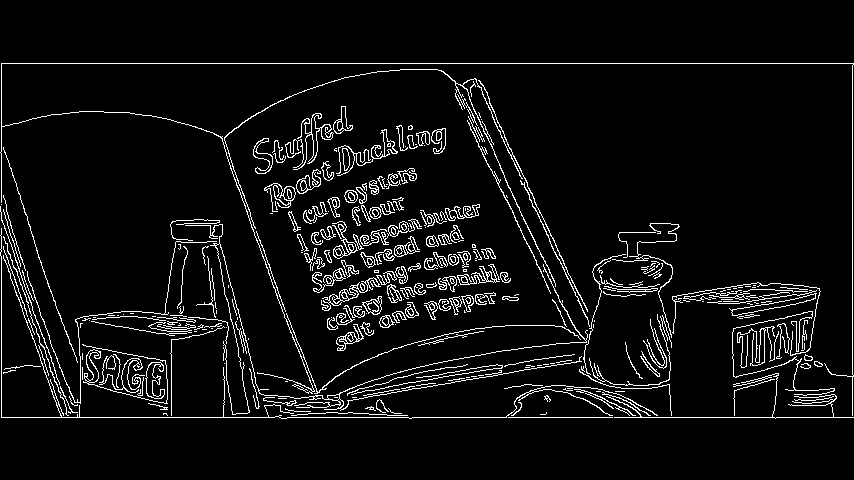 Stuffed
Roast Duckling
1 cup oysters
1 cup flour
½ tablespoon butter
Soak bread and
seasoning~chop in
celery fine~sprinkle
salt and pepper~
SAGE
THYME